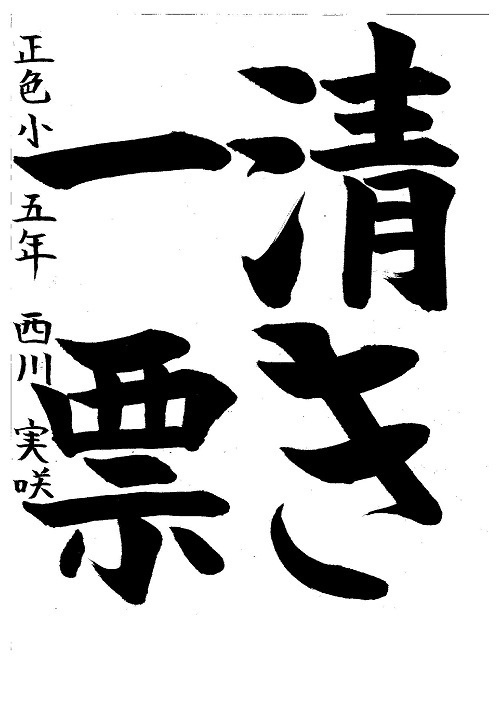 清き
一票
正色小 五年 西川 実咲